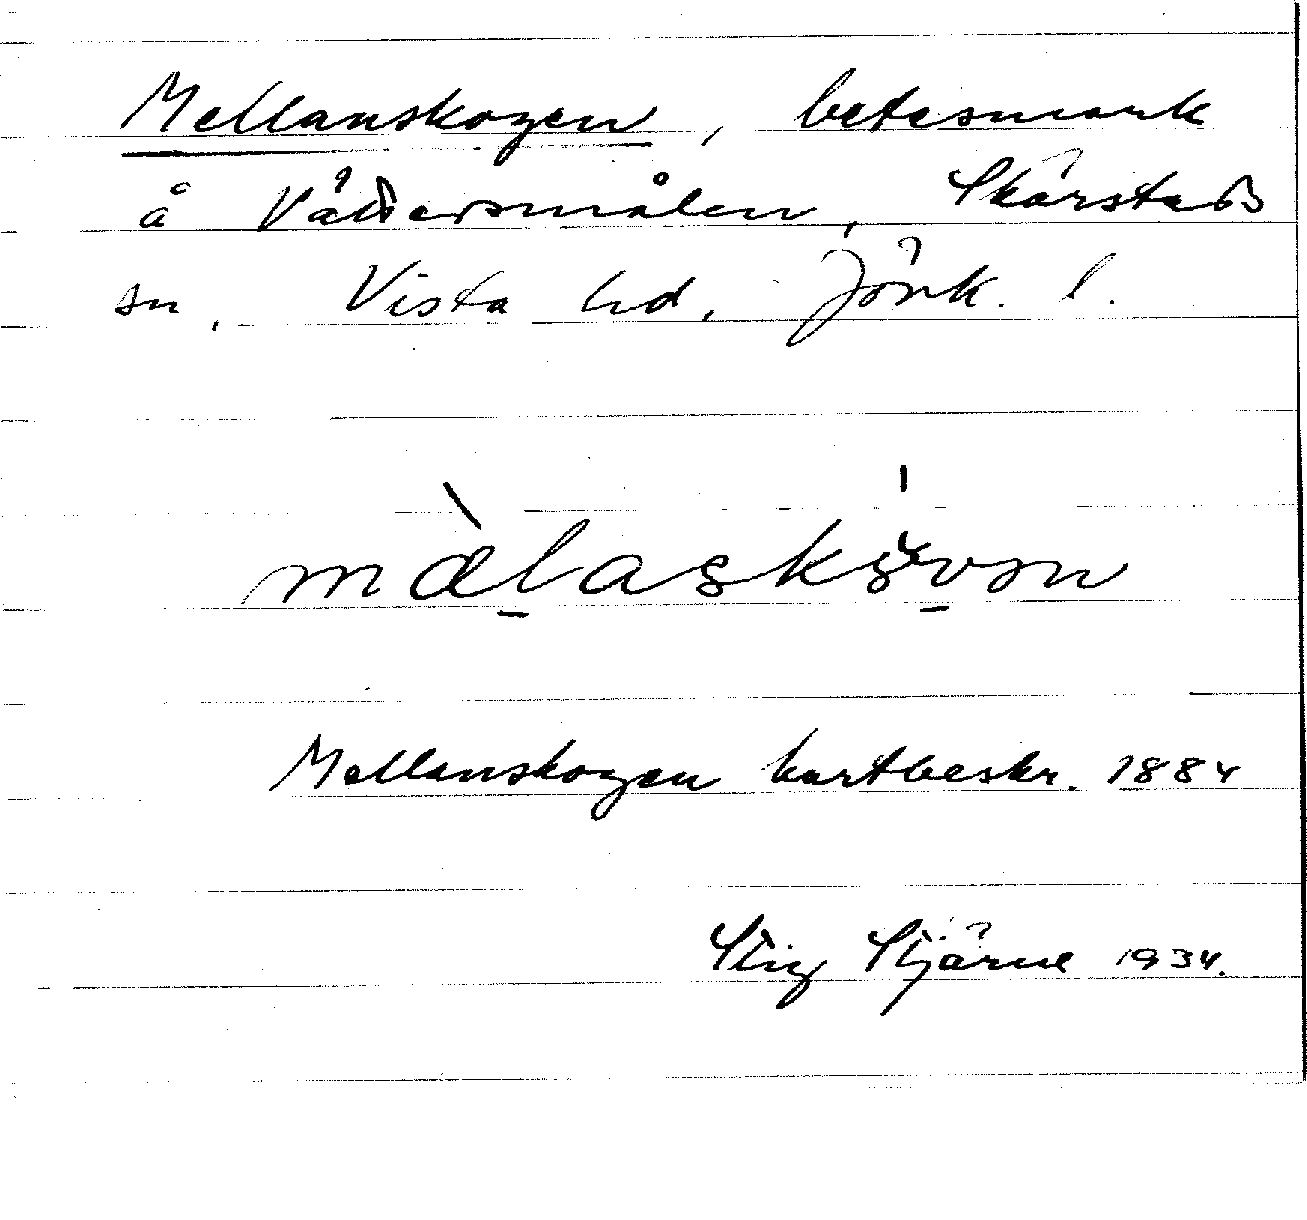 Mellanskogen, betesmark
å Vädersmålen, Skärstads
sn, Vista hd, Jönk. l.
Mellanskogen kartbeskr. 1884
Stig Stjärne 1934.